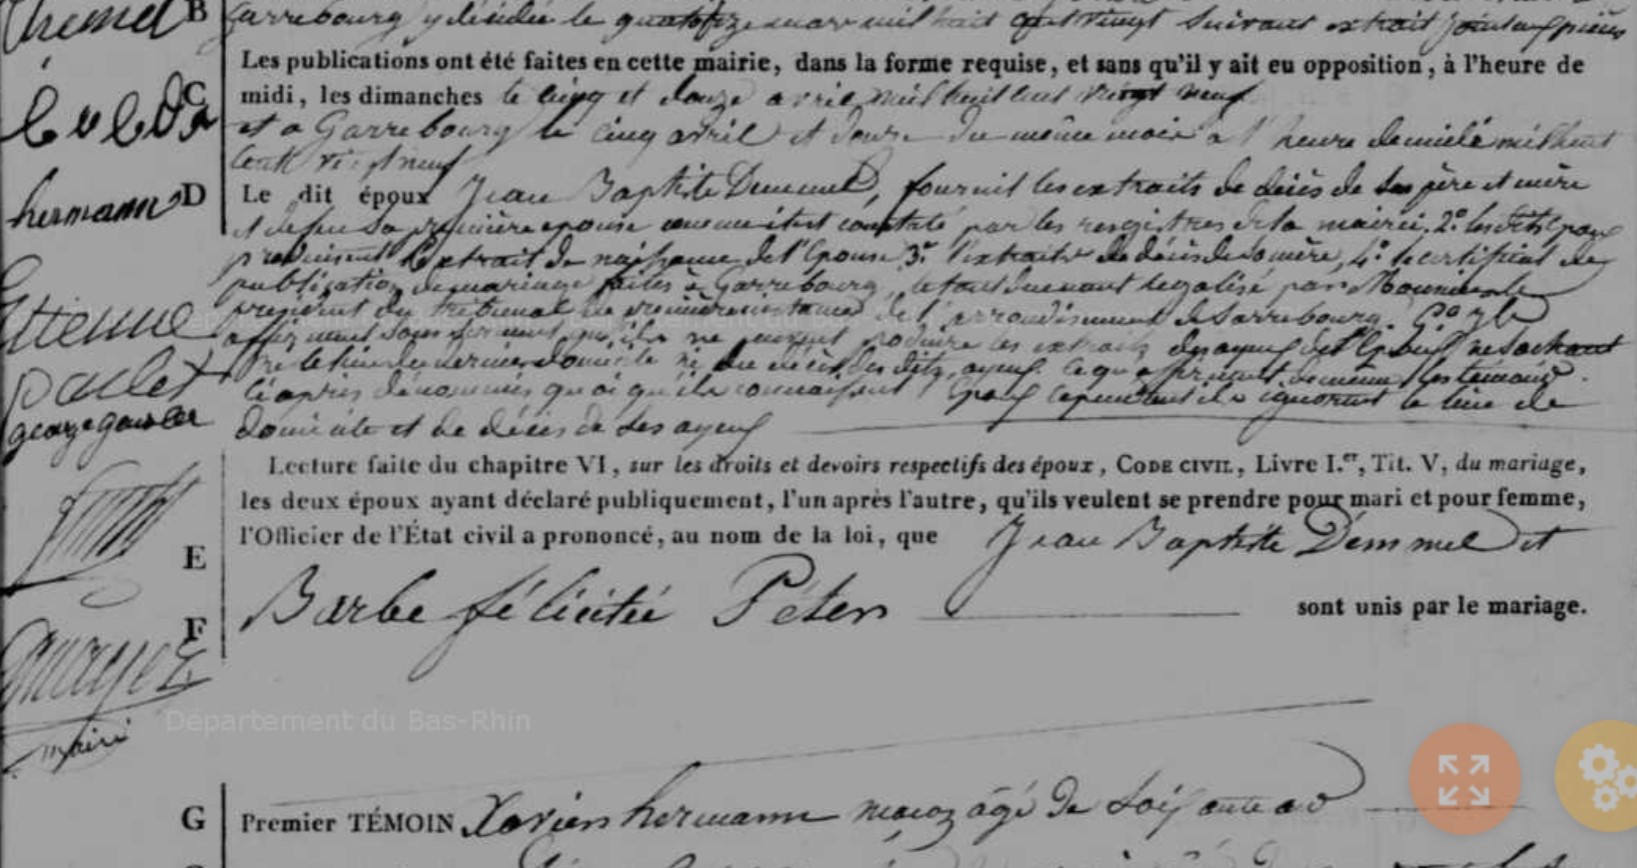 B
Garrebourg y décédée le quatorze mars mil huit cent vingt suivant extrait joint aux pièces
Les publications ont été faites en cette mairie, dans la forme requise, et sans qu'il y ait eu opposition, à l'heure de
C
midi, les dimanches le cinq et douze avril mil huit cent vingt neuf
et a Garrebourg le cinq avril et douze du même mois a l'heure de midi mil huit
cent vingt neuf
hermann
D
Le dit époux Jean Baptiste Demmel, fournit les extraits de décès de ses père et mère
et de feu sa première epouse comme il est constaté par les registres de la mairie. 2° les dits époux
produisent l'extrait de naissance de l'Epouse 3° l'extrait de décès de sa mère, 4° le certificat de
publication de mariage faites à Garrebourg, le tout duement legalisé par
président du tribunal de première instance de l'arrondissement de Sarrebourg.
affirment sous serment qu'ils ne peuvent produire les extraits des ayeux de l'Epouse ne sachant
ni le lieu du dernier domicile ni du décès des dits ayeux ce qu'affirment de même les temoins
ci après dénommés quoi qu'ils connaissent l'Epouse cependant ils ignorent le lieu de
domicile et de décès de ses ayeux
Etienne
paclet
george
Lecture faite du chapitre VI, sur les droits et devoirs respectifs des époux, CODE CIVIL, Livre I.er, Tit. V, du mariage,
les deux époux ayant déclaré publiquement, l'un après l'autre, qu'ils veulent se prendre pour mari et pour femme,
l'Officier de l'État civil a prononcé, au nom de la loi, que Jean Baptiste Demmel et
E
Barbe félicité Péters sont unis par le mariage.
F
maire
Département du Bas-Rhin
G
Premier TÉMOIN Xavier hermann maçon âgé de soixante ans